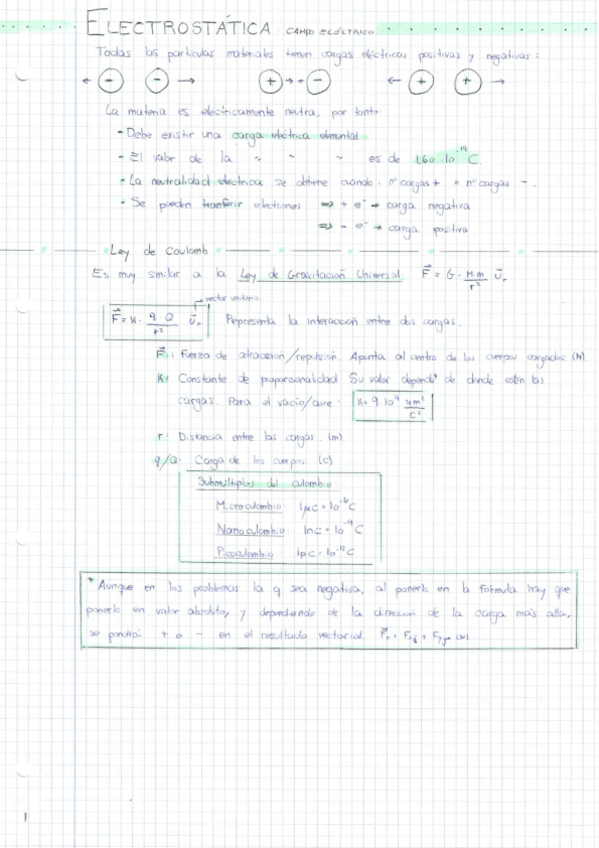 ELECTROSTÁTICA: CAMPO ELÉCTRICO
Todas las partículas materiales tienen cargas eléctricas positivas y negativas:
← (-) (-) → (+)→ ←(-) ← (+) (+) →
La materia es eléctricamente neutra, por tanto
- Debe existir una carga eléctrica elmental
- El valor de la ~ ~ ~ es de 1,60·10⁻¹⁹ C.
• La neutralidad eléctrica se obtiene cuando nº cargas + = nº cargas -.
• Se pueden tranferir electrones ⇒ + e⁻ → carga negativa
⇒ - e⁻ → carga positiva
Ley de Coulomb
Es muy similar a la Ley de Gravitación Universal: F⃗ = G · M·m/r² u⃗ᵣ
vector unitario
F⃗ = K · q·Q/r² u⃗ᵣ Representa la interacción entre dos cargas.
F⃗: Fuerza de atracción/repulsión. Apunta al centro de los cuerpos cargados (N)
K: Constante de proporcionalidad Su valor depende de donde estén las
cargas. Para el vacío/aire: K = 9·10⁹ Nm²/C²
r: Distancia entre las cargas. (m)
q/Q: Carga de los cuerpos. (C)
Submúltiplos del culombio
Microculombio: 1μC = 10⁻⁶C
Nanoculombio: 1nC = 10⁻⁹C
Picoculombio: 1pC = 10⁻¹²C
* Aunque en los problemas la q sea negativa, al ponerlo en la fórmula hay que
ponerlo en valor absoluto, y dependiendo de la dirección de la carga más alta,
se pondrá + o - en el resultado vectorial.
1